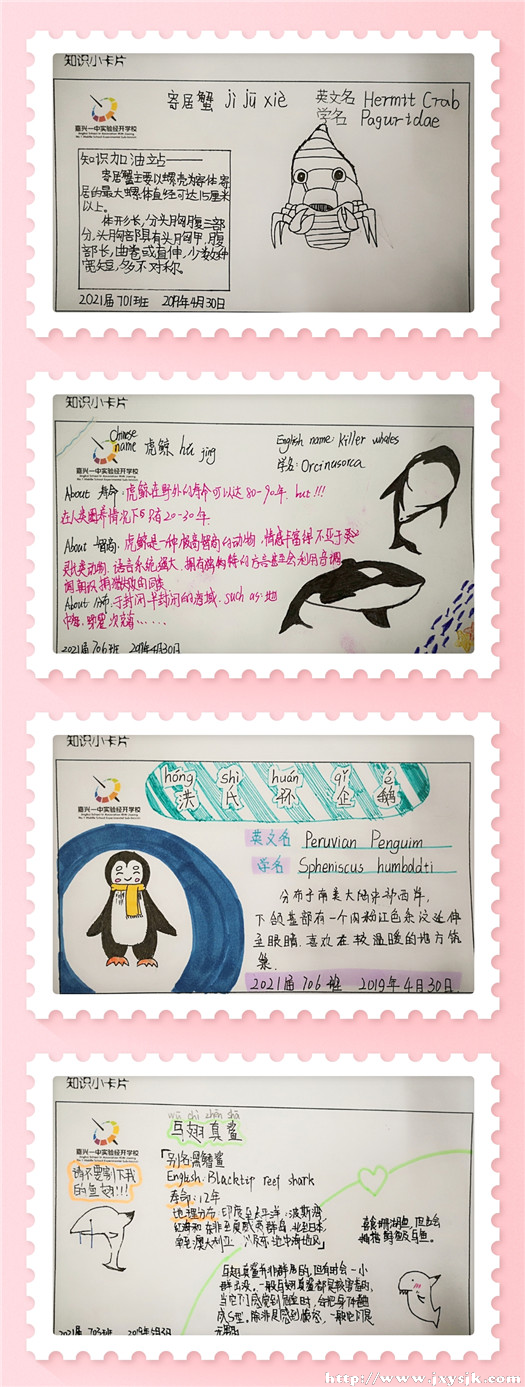 知识小卡片
寄居蟹 jì jū xiè
英文名 Hermit Crab
学名 Paguridae
嘉兴一中实验经开学校
知识加油站——
寄居蟹主要以螺壳为寄体,寄
居的最大螺体直经可达15厘米
以上。
体形长,分头胸腹三部
分,头胸部具有头胸甲,腹
部长,曲卷或直伸,少数种
宽短,多不对称。
2021届701班 2019年4月30日
知识小卡片
Chinese name 虎鲸 hǔ jīng
English name: killer whales
学名: Orcinusorca
嘉兴一中实验经开学校
About 寿命: 虎鲸在野外的寿命可以达80-90年. but!!!
在人类圈养情况下只有20-30年.
About 智商, 虎鲸是一种极高智商的动物, 情感丰富得不亚于灵
长类动物. 语言系统强大. 拥有独特的方言甚至会利用音调
About 分布: 于封闭半封闭的海域. such as: 地
中海,
2021届706班 2019年4月30日
知识小卡片
hóng shì huán qǐ é
洪 氏 环 企 鹅
嘉兴一中实验经开学校
英文名 Peruvian Penguim
学名 Spheniscus humboldti
分布于南美大陆东部西岸,
下颌基部有一个肉粉红色条纹延伸
至眼睛. 喜欢在较温暖的地方筑
巢.
2021届706班 2019年4月30日.
知识小卡片
wū chì zhēn shā
乌翅真鲨
嘉兴一中实验经开学校
别名:黑鳍鲨
English: Blacktip reef shark
请不要割下我
的鱼翅!!!
寿命: 12年
地理分布: 印度至太平洋: 波斯湾
红海和在非至夏威夷群岛, 北到日本,
南到澳大利亚.
喜食珊瑚鱼, 但也会
乌翅真鲨并非群居的, 但有时会一小
群出没. 一般乌翅真鲨都是较害羞的,
当它们感觉到危险时, 会把身体翘
成S型.
2021届 703班 2019年4月3
http://www.jxysjk.com